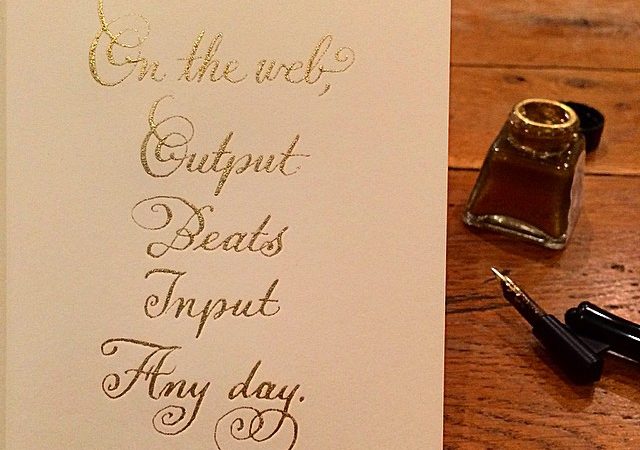 On the web,
Output
Beats
Input
Any day.